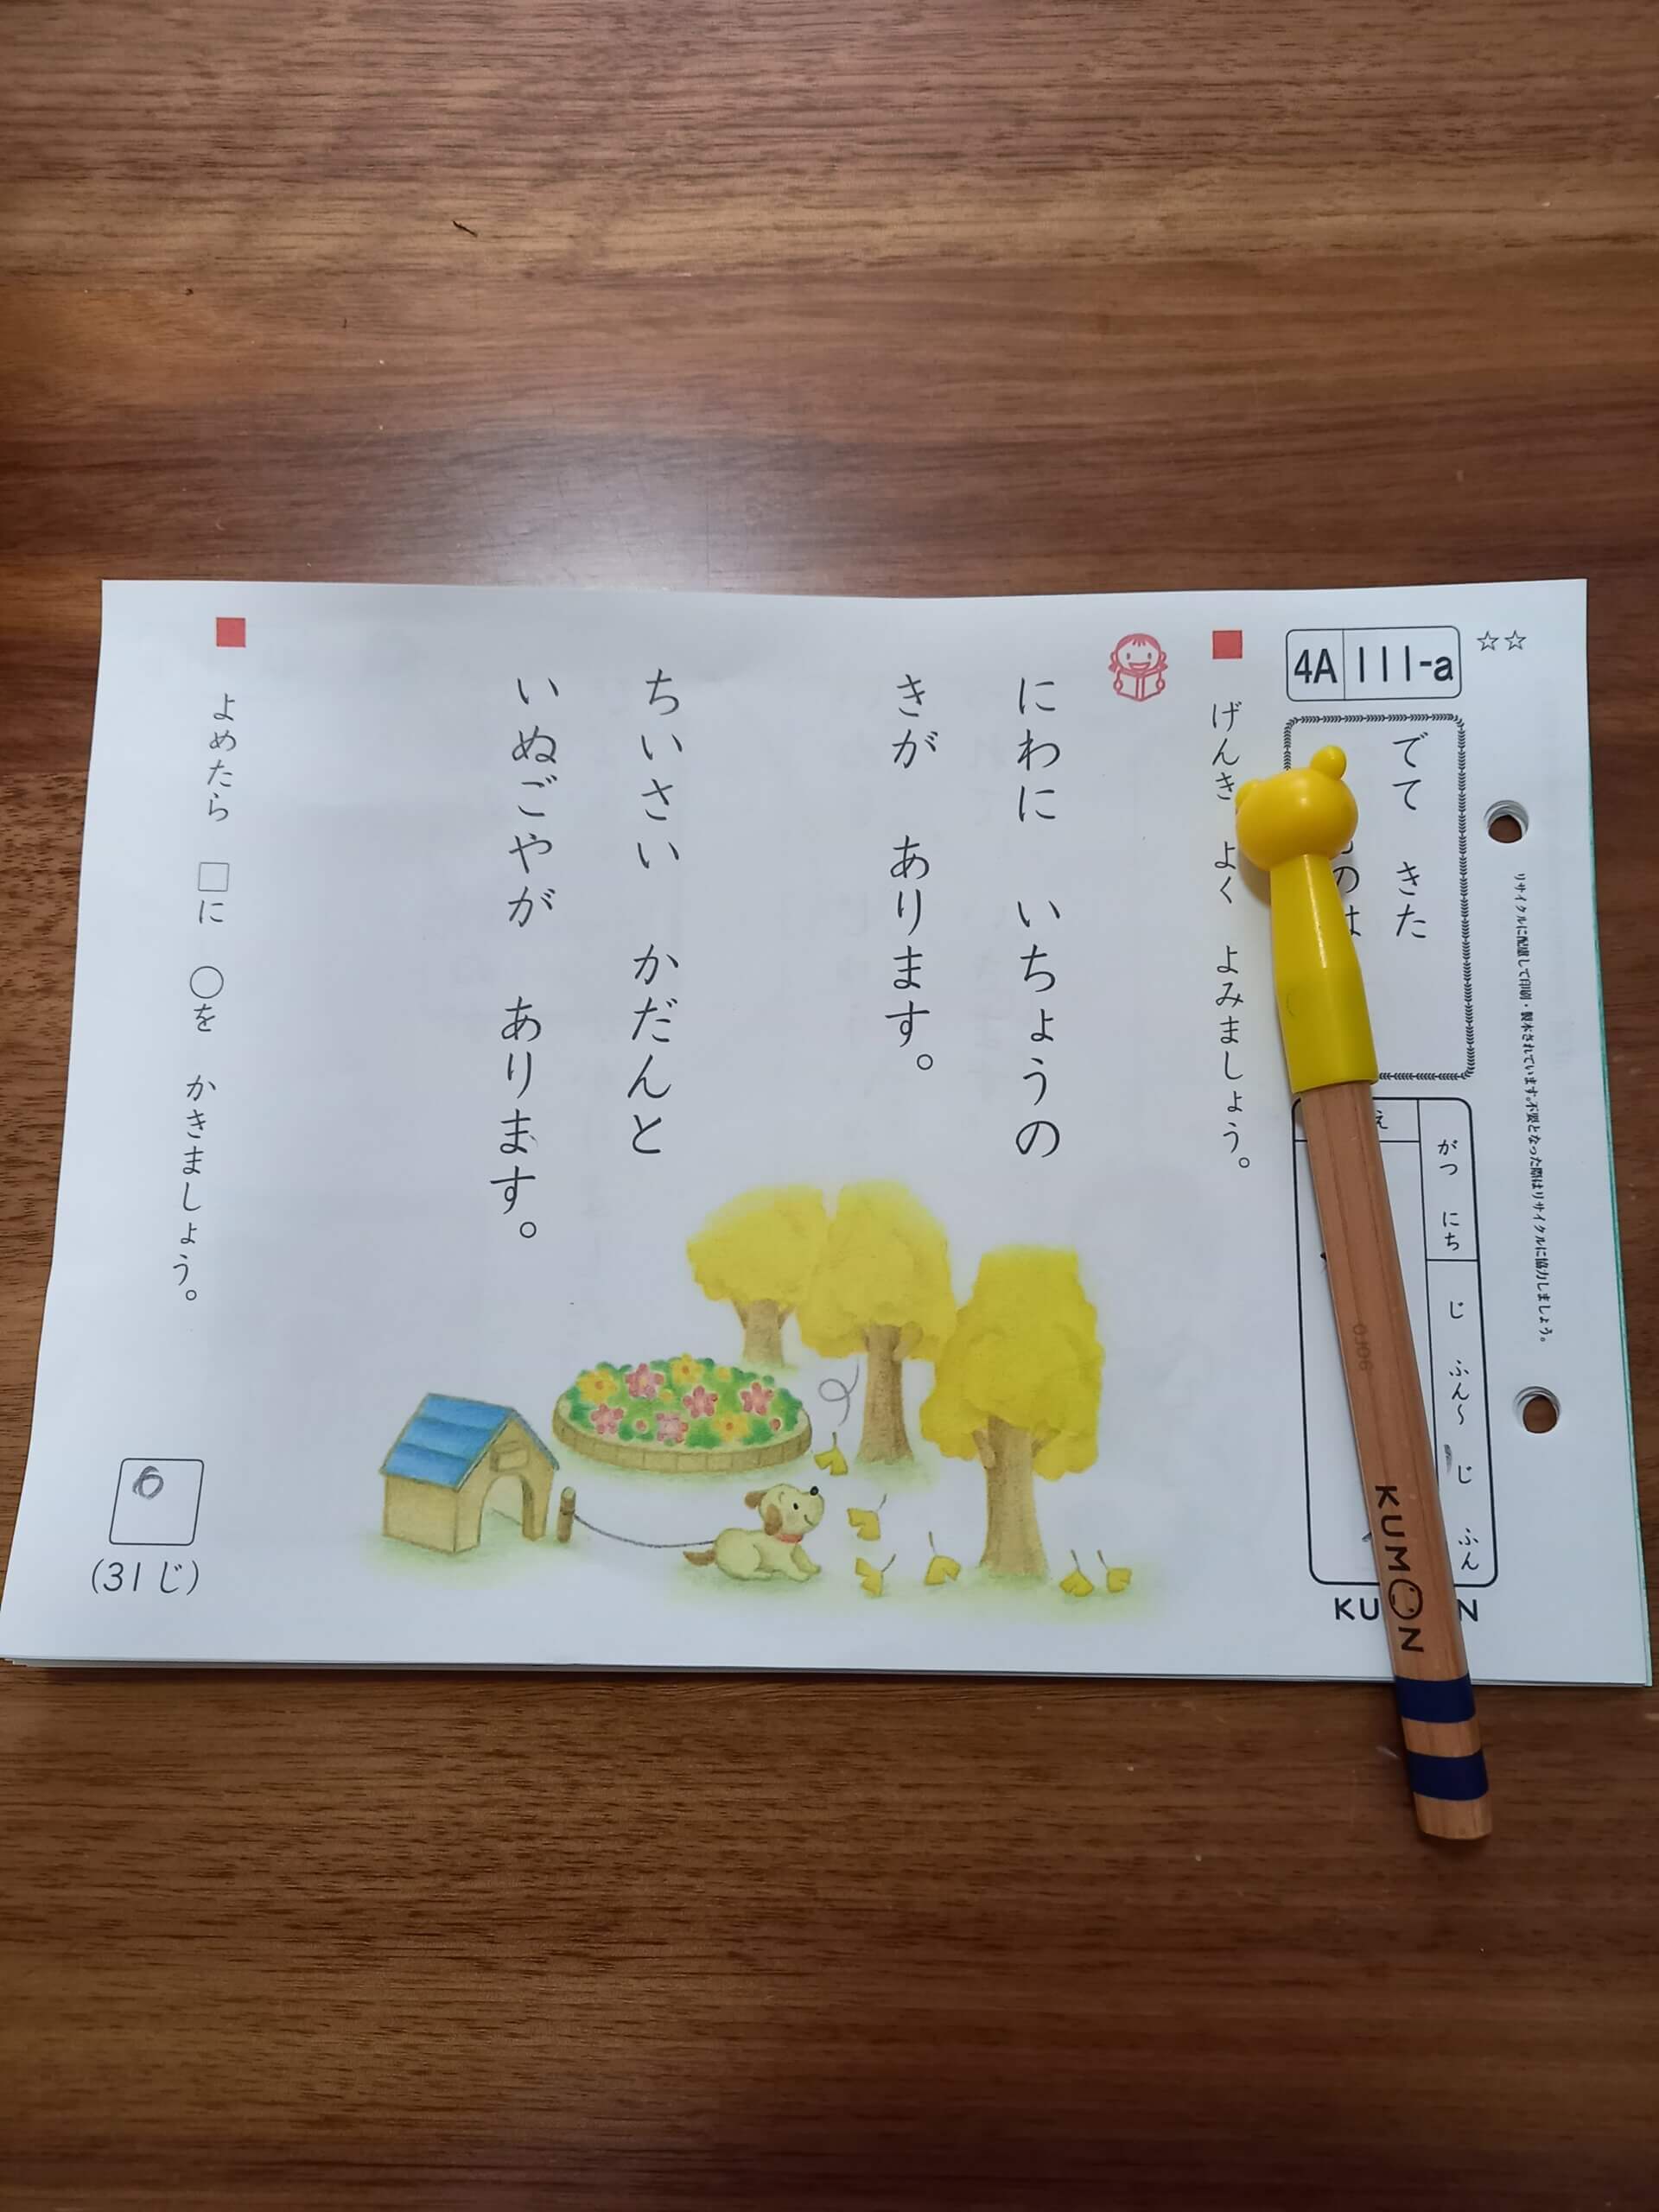 リサイクルに配慮して印刷・製本されています。不要となった際はリサイクルに協力しましょう。
☆☆
4A 111-a
でて きた
のは
がつ にち
じ ふん〜 じ ふん
え
KU N
KUMON
げんき よく よみましょう。
にわに いちょうの
きが あります。
ちいさい かだんと
いぬごやが あります。
よめたら □に ○を かきましょう。
(31じ)